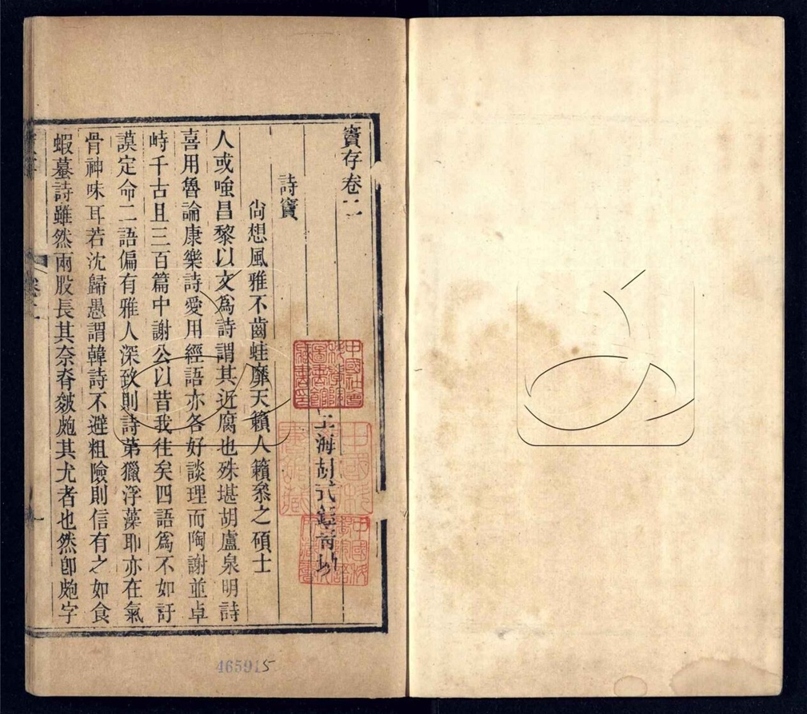 竇存卷二
上海胡式鈺青坳
詩竇
尙想風雅不齒蛙靡天籟人籟叅之碩士
人或嗤昌黎以文爲詩謂其近腐也殊堪胡盧泉明詩
喜用魯論康樂詩愛用經語亦各好談理而陶謝並卓
峙千古且三百篇中謝公以昔我往矣四語爲不如訏
謨定命二語偏有雅人深致則詩第獵浮藻耶亦在氣
骨神味耳若沈歸愚謂韓詩不避粗險則信有之如食
蝦蟇詩雖然兩股長其奈脊皴皰其尤者也然卽皰字
465915